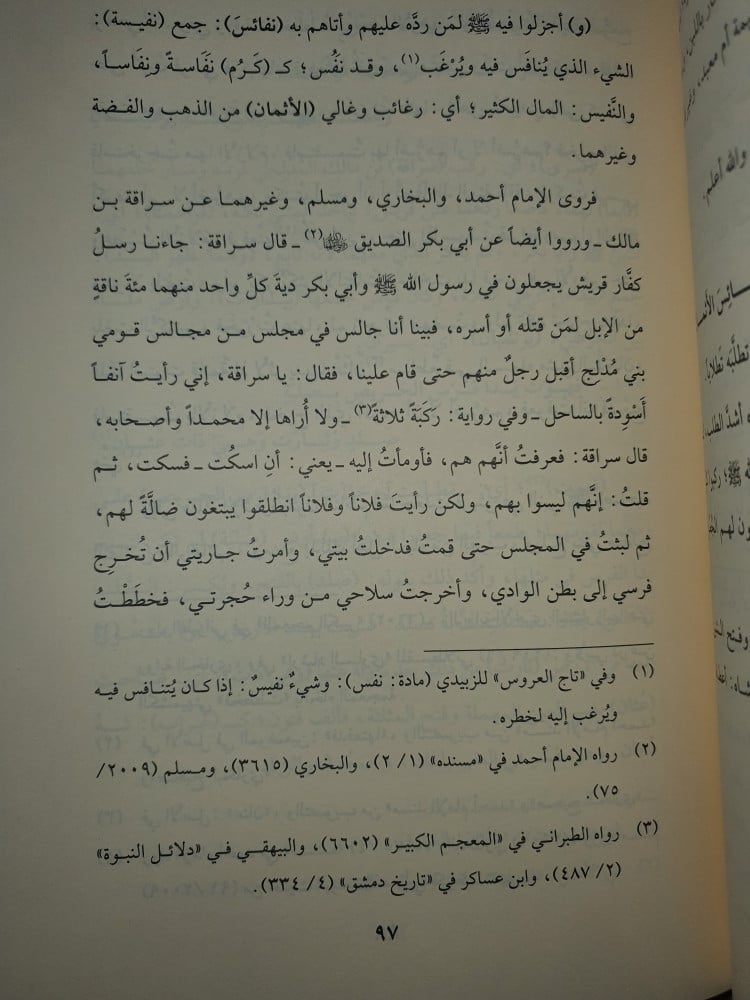 (و) أجزلوا فيه ﷺ لمَن ردَّه عليهم وأتاهم به (نفائسَ): جمع (نفيسة):
الشيء الذي يُنافَس فيه ويُرْغَب(١)، وقد نَفُس؛ كـ (كَرُم) نَفَاسةً ونِفَاساً،
والنَّفيس: المال الكثير؛ أي: رغائب وغالي (الأثمان) من الذهب والفضة
وغيرهما.
فروى الإمام أحمد، والبخاري، ومسلم، وغيرهما عن سراقة بن
مالك ـ ورووا أيضاً عن أبي بكر الصديق ﵁(٢) ـ قال سراقة: جاءنا رسلُ
كفَّار قريش يجعلون في رسول الله ﷺ وأبي بكر ديةَ كلِّ واحد منهما مئةَ ناقةٍ
من الإبل لمَن قتله أو أسره، فبينا أنا جالس في مجلس من مجالس قومي
بني مُدْلِج أقبل رجلٌ منهم حتى قام علينا، فقال: يا سراقة، إني رأيتُ آنفاً
أَسْوِدةً بالساحل ـ وفي رواية: رَكَبَةً ثلاثةً(٣) ـ ولا أُراها إلا محمداً وأصحابه،
قال سراقة: فعرفتُ أنَّهم هم، فأومأتُ إليه ـ يعني: أنِ اسكُت ـ فسكت، ثم
قلتُ: إنَّهم ليسوا بهم، ولكن رأيتَ فلاناً وفلاناً انطلقوا يبتغون ضالَّةً لهم،
ثم لبثتُ في المجلس حتى قمتُ فدخلتُ بيتي، وأمرتُ جاريتي أن تُخرِج
فرسي إلى بطن الوادي، وأخرجتُ سلاحي من وراء حُجرتي، فخطَطْتُ
(١) وفي «تاج العروس» للزبيدي (مادة: نفس): وشيءٌ نفيسٌ: إذا كان يُتنافس فيه
ويُرغب إليه لخطره.
(٢) رواه الإمام أحمد في «مسنده» (١/ ٢)، والبخاري (٣٦١٥)، ومسلم (٢٠٠٩/
٧٥).
(٣) رواه الطبراني في «المعجم الكبير» (٦٦٠٢)، والبيهقي في «دلائل النبوة»
(٢/ ٤٨٧)، وابن عساكر في «تاريخ دمشق» (٤/ ٣٣٤).
٩٧
والله أعلم.